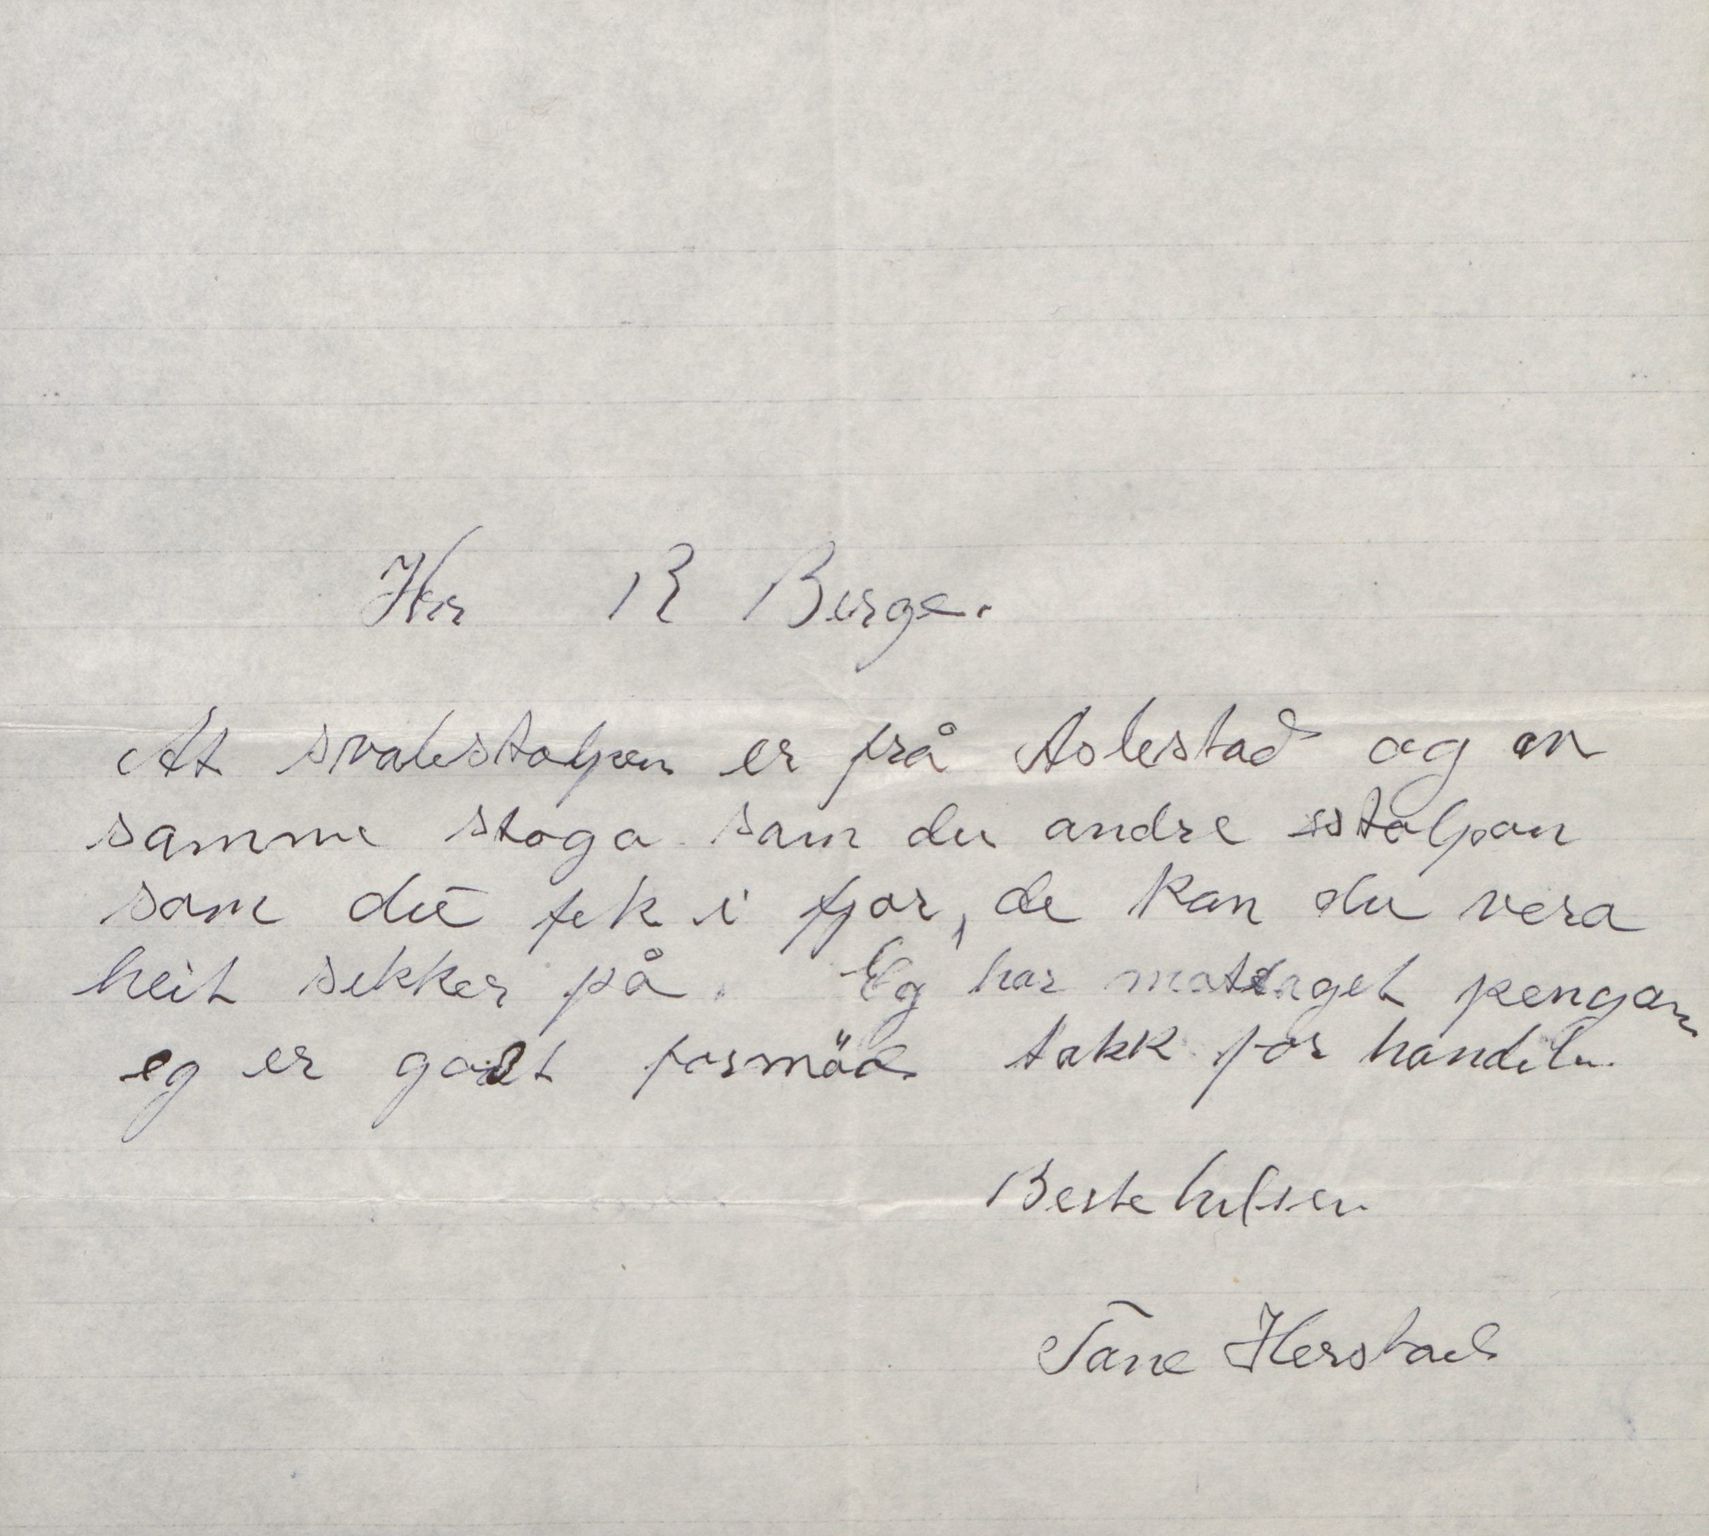 Her R Berge.
At svalestolpen er frå Aslestad og en
samme stoga som dei andre stolpan
som du fek i fjor, de kan du vera
heit sikker på. Eg har mottaget pengan
eg er godt fornöid takk for handeln.
Beste hilsen
Tåne Herstad